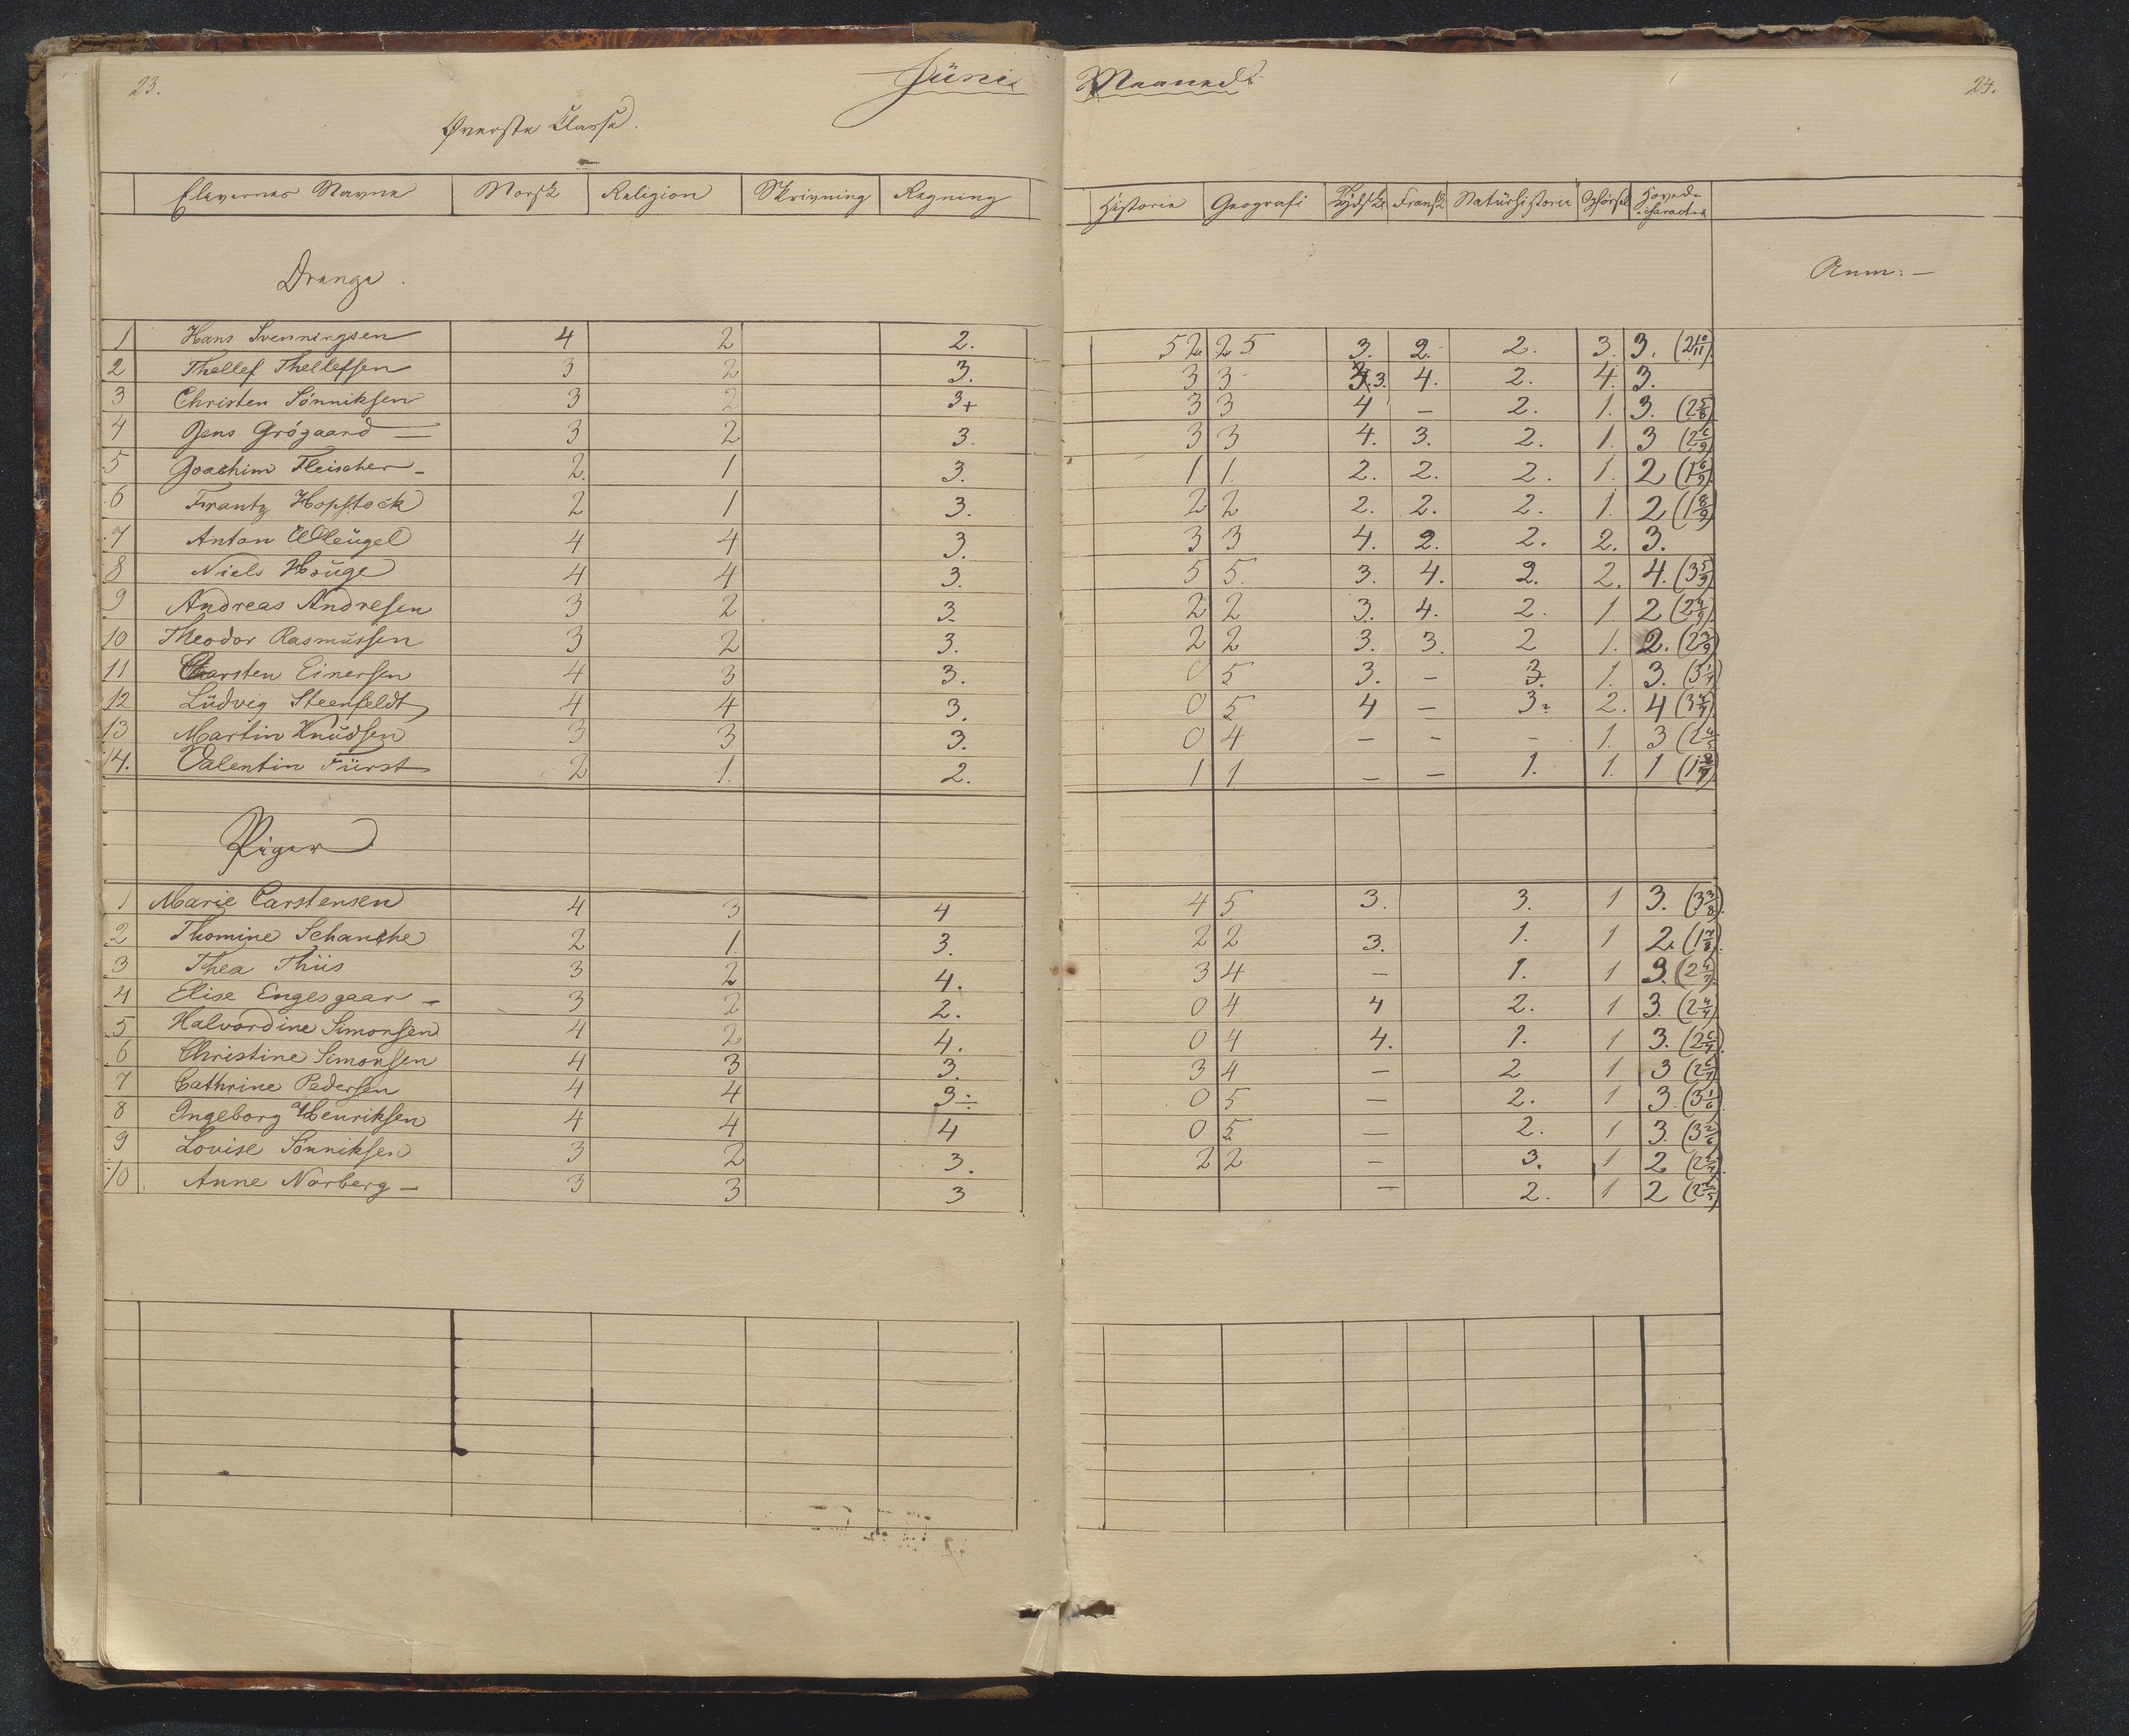 23. Juni Maaned 24.
Øverste Classe.
Elevernes Navne Norsk Religion Skrivning Regning Historie Geografi Tydske Fransk Naturhistorie Opførsel Hoved-character
Drenge. Anm:—
1 Hans Svenningsen 4 2 2. 5 2 2 5 3. 2. 2. 3. 3. (2 10/11)
2 Thellef Thellefsen 3 2 3. 3 3 3. 4. 2. 4. 3.
3 Christen Sönniksen 3 2 3+ 3 3 4 — 2. 1. 3. (2 5/8)
4 Jens Grögaard — 3 2 3. 3 3 4. 3. 2. 1. 3 (2 6/9)
5 Joachim Fleischer — 2. 1 3. 1 1. 2. 2. 2. 1. 2 (1 6/9)
6 Frantz Hopstock 2 1 3. 2 2 2. 2. 2. 1. 2 (1 8/9)
7 Anton Wleügel 4 4 3. 3 3 4. 2. 2. 2. 3.
8 Niels Houge 4 4 3. 5 5. 3. 4. 2. 2. 4. (3 5/9)
9 Andreas Andresen 3 2 3. 2 2 3. 4. 2. 1. 2 (2 4/9)
10 Theodor Rasmussen 3 2 3. 2 2 3. 3. 2 1. 2. (2 3/9)
11 Carsten Einersen 4 3 3. 0 5 3. — 3. 1. 3. (3 1/7)
12 Lüdvig Steenfeldt 4 4 3. 0 5 4 — 3. 2. 4 (3 4/7)
13 Martin Knüdsen 3 3 3. 0 4 — - - 1. 3 (2 4/5)
14. Valentin Fürst 2 1. 2. 1 1. — — 1. 1. 1 (1 2/7)
Piger
1 Marie Carstensen 4 3 4 4 5 3. 3. 1 3. (3 3/8)
2 Thomine Schanche 2 1. 3. 2 2 3. 1. 1 2. (1 7/8)
3 Thea Thiis 3 2 4. 3 4 — 1. 1 3. (2 4/7)
4 Elise Engesgaar — 3 2 2. 0 4 4 2. 1 3. (2 4/7)
5 Halvordine Simonsen 4 2 4. 0 4 4. 1. 1 3. (2 6/7)
6 Christine Simonsen 4 3 3. 3 4 — 2 1 3 (2 6/7)
7 Cathrine Pedersen 4 4 3÷ 0 5 — 2. 1 3. (3 1/6)
8 Ingeborg Henriksen 4 4 4 0 5 — 2. 1 3. (3 2/6)
9 Lovise Sönniksen 3 2 3. 2 2 — 3. 1 2
10 Anne Norberg — 3 3 3 — 2. 1 2 (2 2/5)